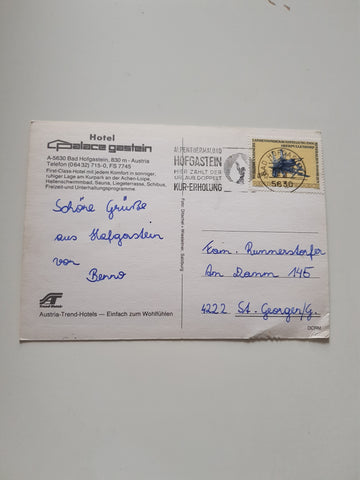 Hotel
Palace gastein
A-5630 Bad Hofgastein, 830 m - Austria
Telefon (06432) 715-0, FS 7745
First-Class-Hotel mit jedem Komfort in sonniger,
ruhiger Lage am Kurpark an der Achen-Loipe,
Hallenschwimmbad, Sauna, Liegeterrasse, Skibus,
Freizeit- und Unterhaltungsprogramme.
ALPENTHERMALBAD
HOFGASTEIN
HIER ZÄHLT DER
URLAUB DOPPELT
KUR-ERHOLUNG
5630
Schöne Grüße
aus Hofgastein
von
Benno
Fam. Runnerstorfer
Am Damm 145
4222 St. Georgen/G.
Austria-Trend-Hotels — Einfach zum Wohlfühlen